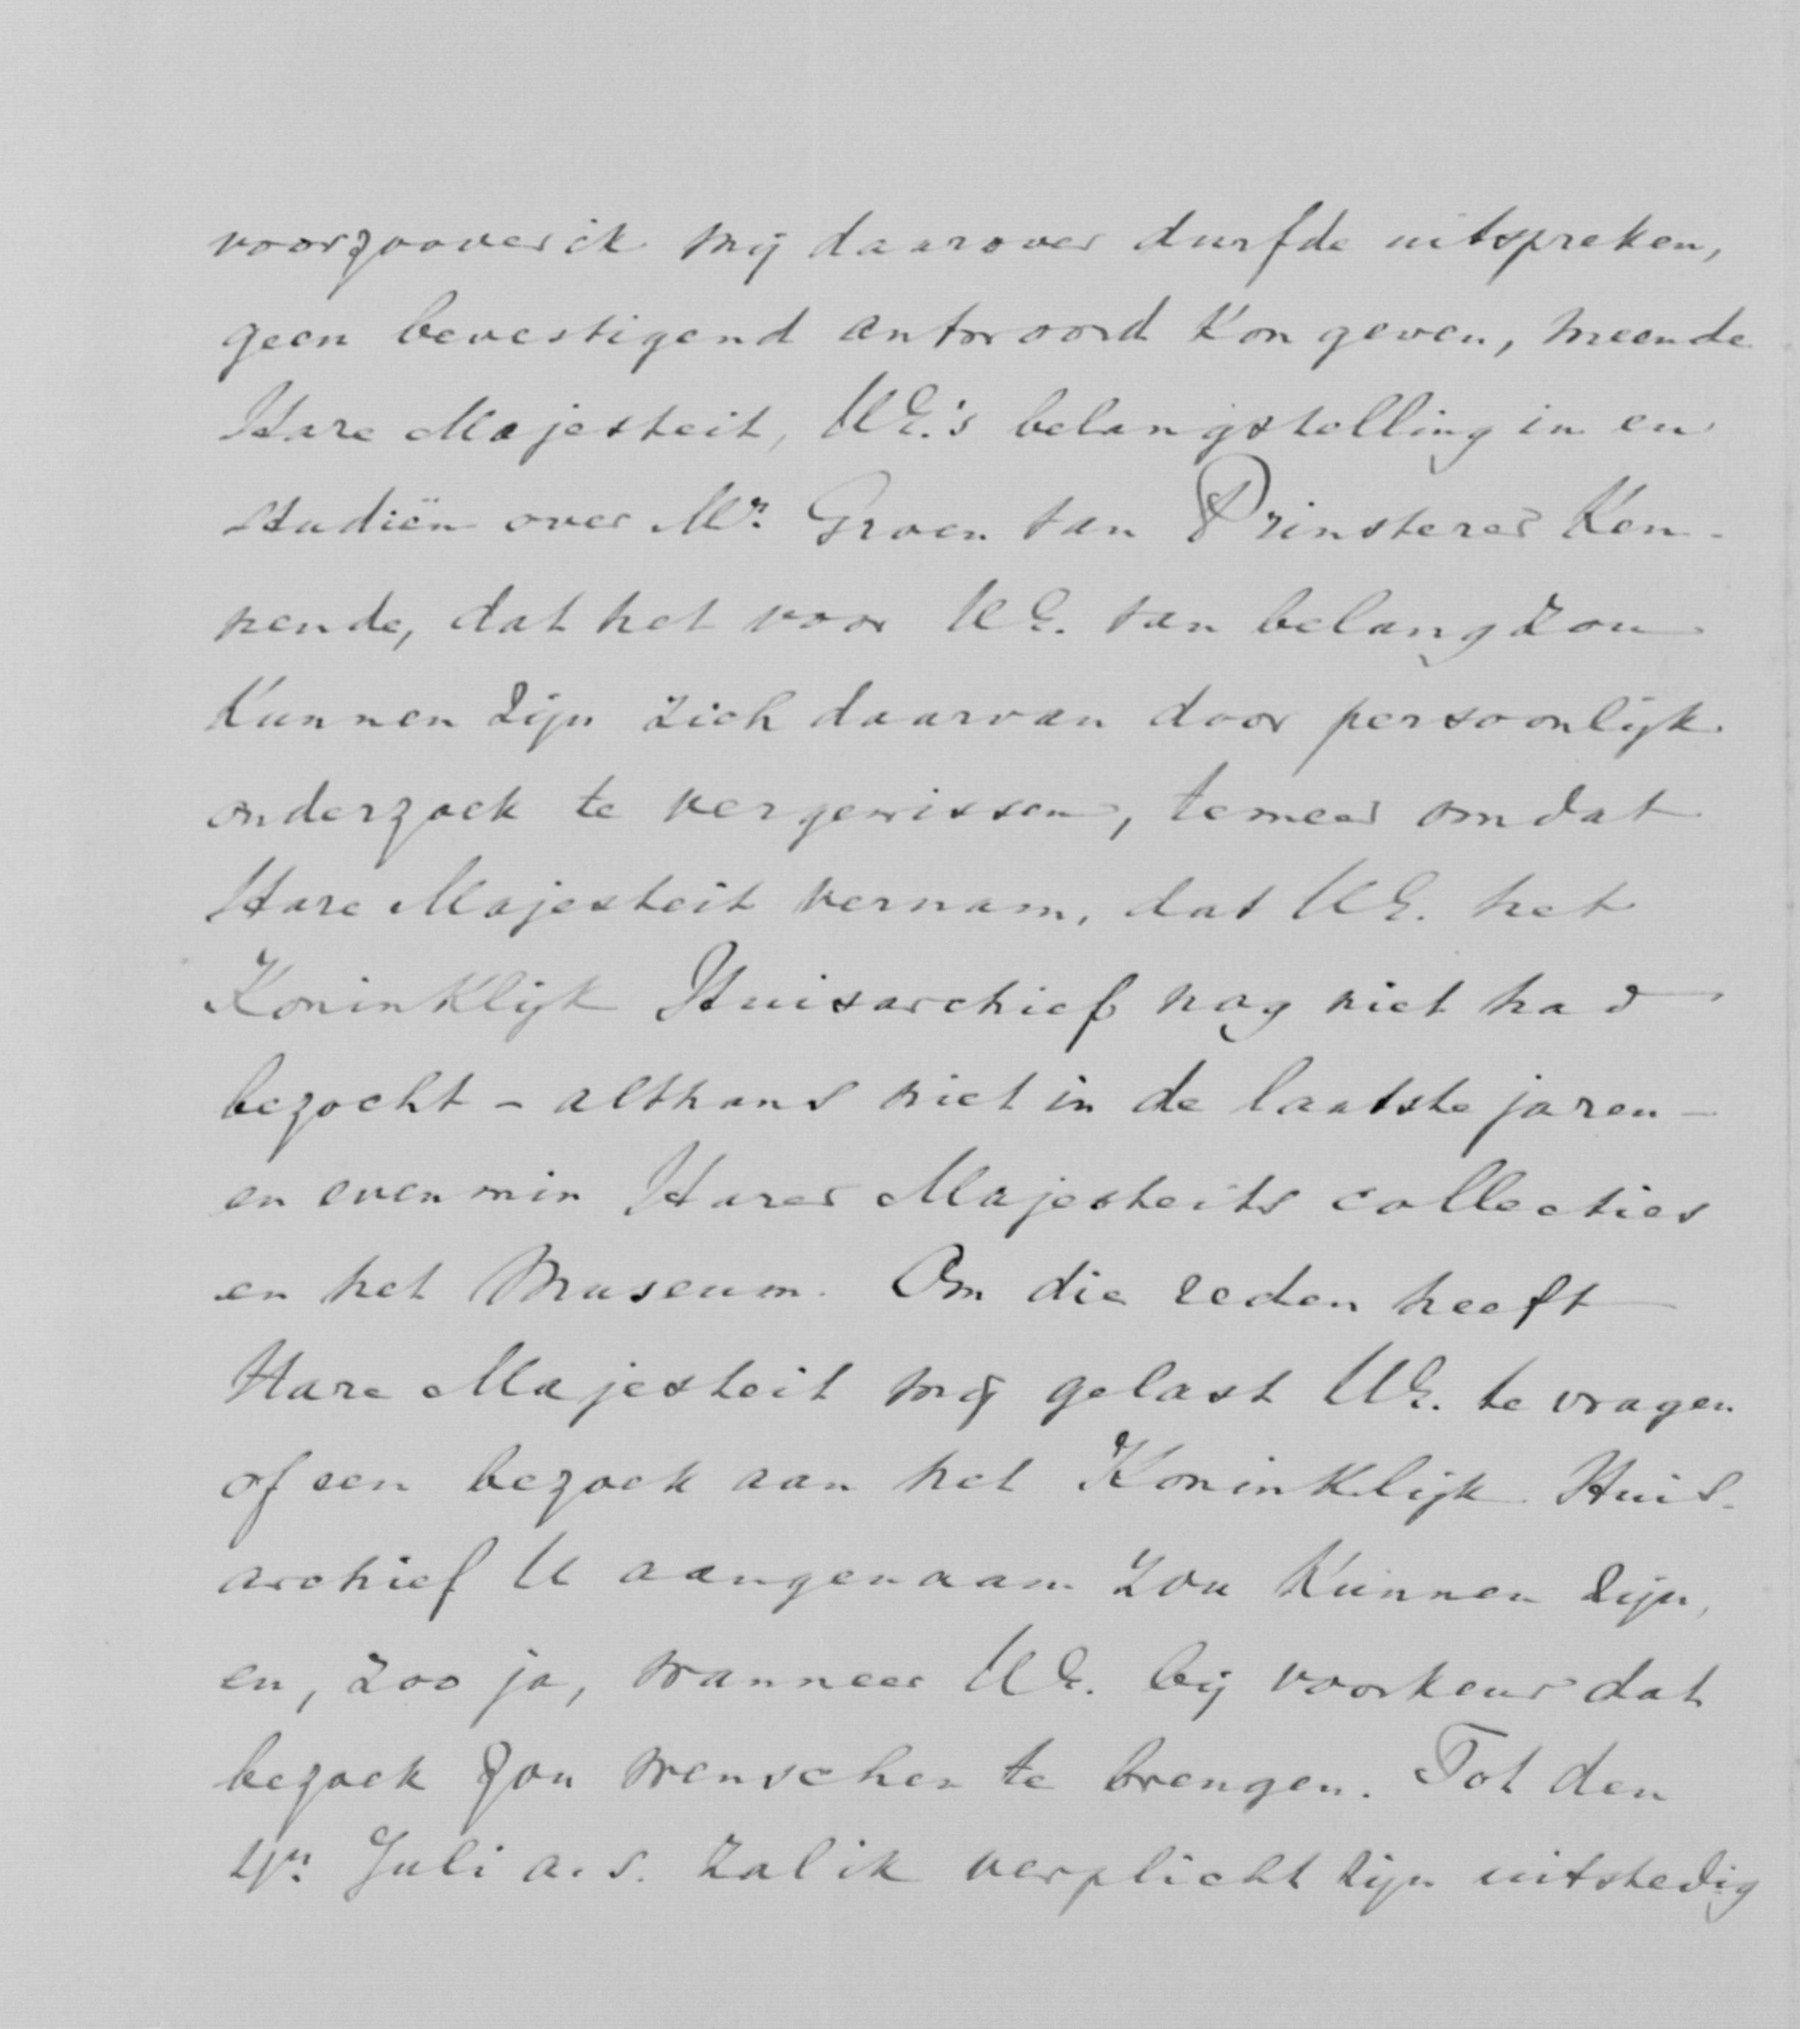 voorzooverik mij daarover durfde uitspreken,
geen bevestigend antwoord kon geven, meende
Hare Majesteit, UE.'s belangstelling in en
studiën over Mr. Groen van Prinsterer ken-
nende, dat het voor UE. van belang zou
kunnen zijn zich daarvan door persoonlijk
onderzoek te vergewissen, temeer omdat
Hare Majesteit vernam, dat UE. het
Koninklijk Huisarchief nog niet had
bezocht - althans niet in de laatste jaren -
en evenmin Harer Majesteits collecties
en het Museum. Om die reden heeft
Hare Majesteit mij gelast UE. te vragen
of een bezoek aan het Koninklijk Huis-
archief U aangenaam zou kunnen zijn,
en, zoo ja, wanneer UE. bij voorkeur dat
bezoek zou wenschen te brengen. Tot den
4n. Juli a.s. zal ik verplicht zijn uitstedig